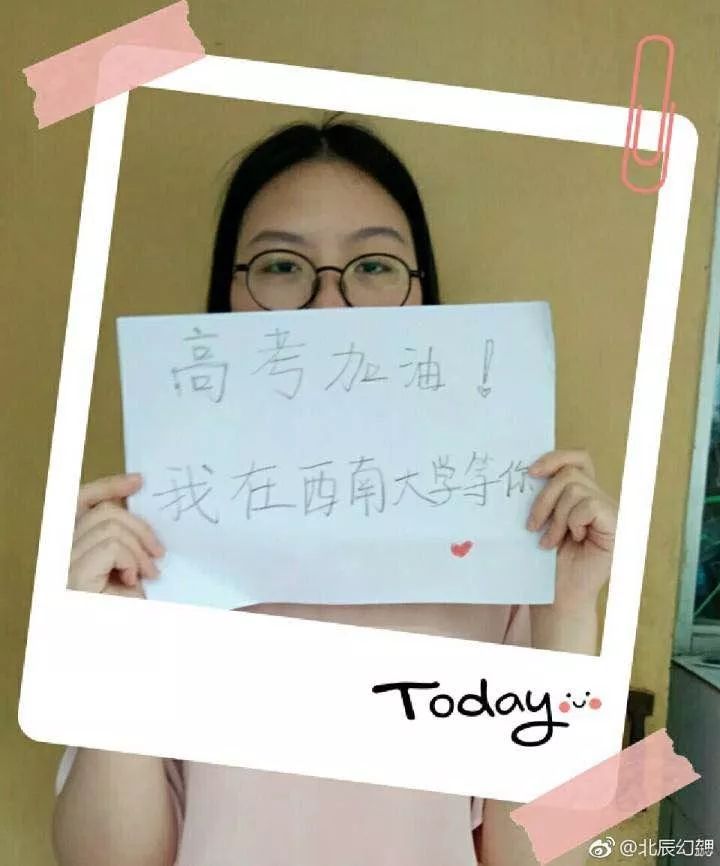 高考加油!
我在西南大学等你
Today
@北辰幻翾